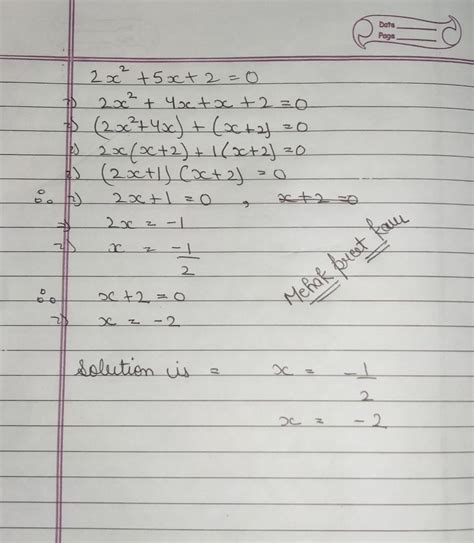 Date
Page
2x² + 5x + 2 = 0
⇒ 2x² + 4x + x + 2 = 0
⇒ (2x² + 4x) + (x + 2) = 0
⇒ 2x(x + 2) + 1(x + 2) = 0
⇒ (2x + 1) (x + 2) = 0
∴ ⇒ 2x + 1 = 0 , x + 2 = 0
⇒ 2x = -1
⇒ x = -1/2
∴ x + 2 = 0
⇒ x = -2
Mehak preet Kaur
Solution is = x = -1/2
x = -2